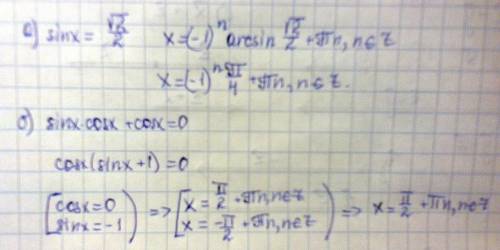 а) sinx = √2/2   x=(-1)ⁿ arcsin √2/2 + πn, n∈Z
x=(-1)ⁿ π/4 + πn, n∈Z.
б) sinx·cosx + cosx=0
cosx(sinx+1)=0
[cosx=0   sinx=-1) => [x=π/2+πn, n∈Z   x=-π/2+πn, n∈Z) => x=π/2+πn, n∈Z